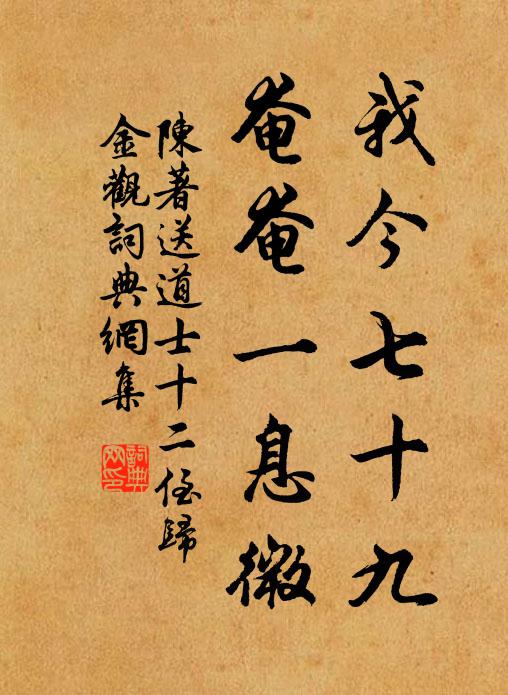 我今七十九
奄奄一息微
陳著送道士十二侄歸
金觀詞典網集
詞典網印